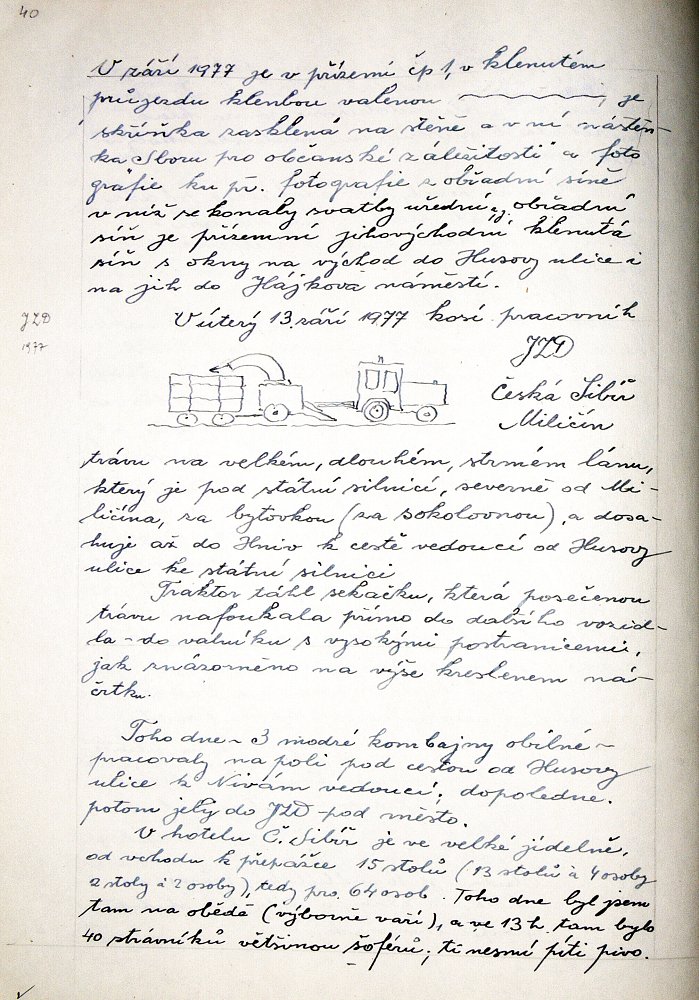 40
V září 1977 je v přízemí čp 1, v klenutém
průjezdu klenbou valenou, je
skříňka zasklená na stěně a v ní nástěn-
ka Sboru pro občanské záležitosti" a foto
grafie ku př. fotografie z obřadní síně
v níž se konaly svatby úřední, obřadní
síň je přízemní jihovýchodní klenutá
síň s okny na východ do Husovy ulice i
na jih do Hájkova náměstí.
JZD
1977
V úterý 13. září 1977 kosí pracovník
JZD
Česká Sibiř
Miličín
trávu na velkém, dlouhém, strmém lánu,
který je pod státní silnicí, severně od Mi-
ličína, za bytovkou (za sokolovnou), a dosa-
huje až do Hniv k cestě vedoucí od Husovy
ulice ke státní silnici
Traktor táhl sekačku, která posečenou
trávu nafoukala přímo do dalšího vozid-
la - do valníku s vysokými postranicemi,
jak znázorněno na výše kresleném ná-
črtku.
Toho dne - 3 modré kombajny obilné -
pracovaly na poli pod cestou od Husovy
ulice k Nivám vedoucí; dopoledne.
potom jely do JZD pod město.
V hotelu Č. Sibiř je ve velké jídelně,
od vchodu k přepážce 15 stolů (13 stolů à 4 osoby
2 stoly à 2 osoby), tedy pro 64 osob. Toho dne byl jsem
tam na obědě (výborně vaří), a ve 13 h. tam bylo
40 strávníků většinou šoférů; ti nesmí píti pivo.